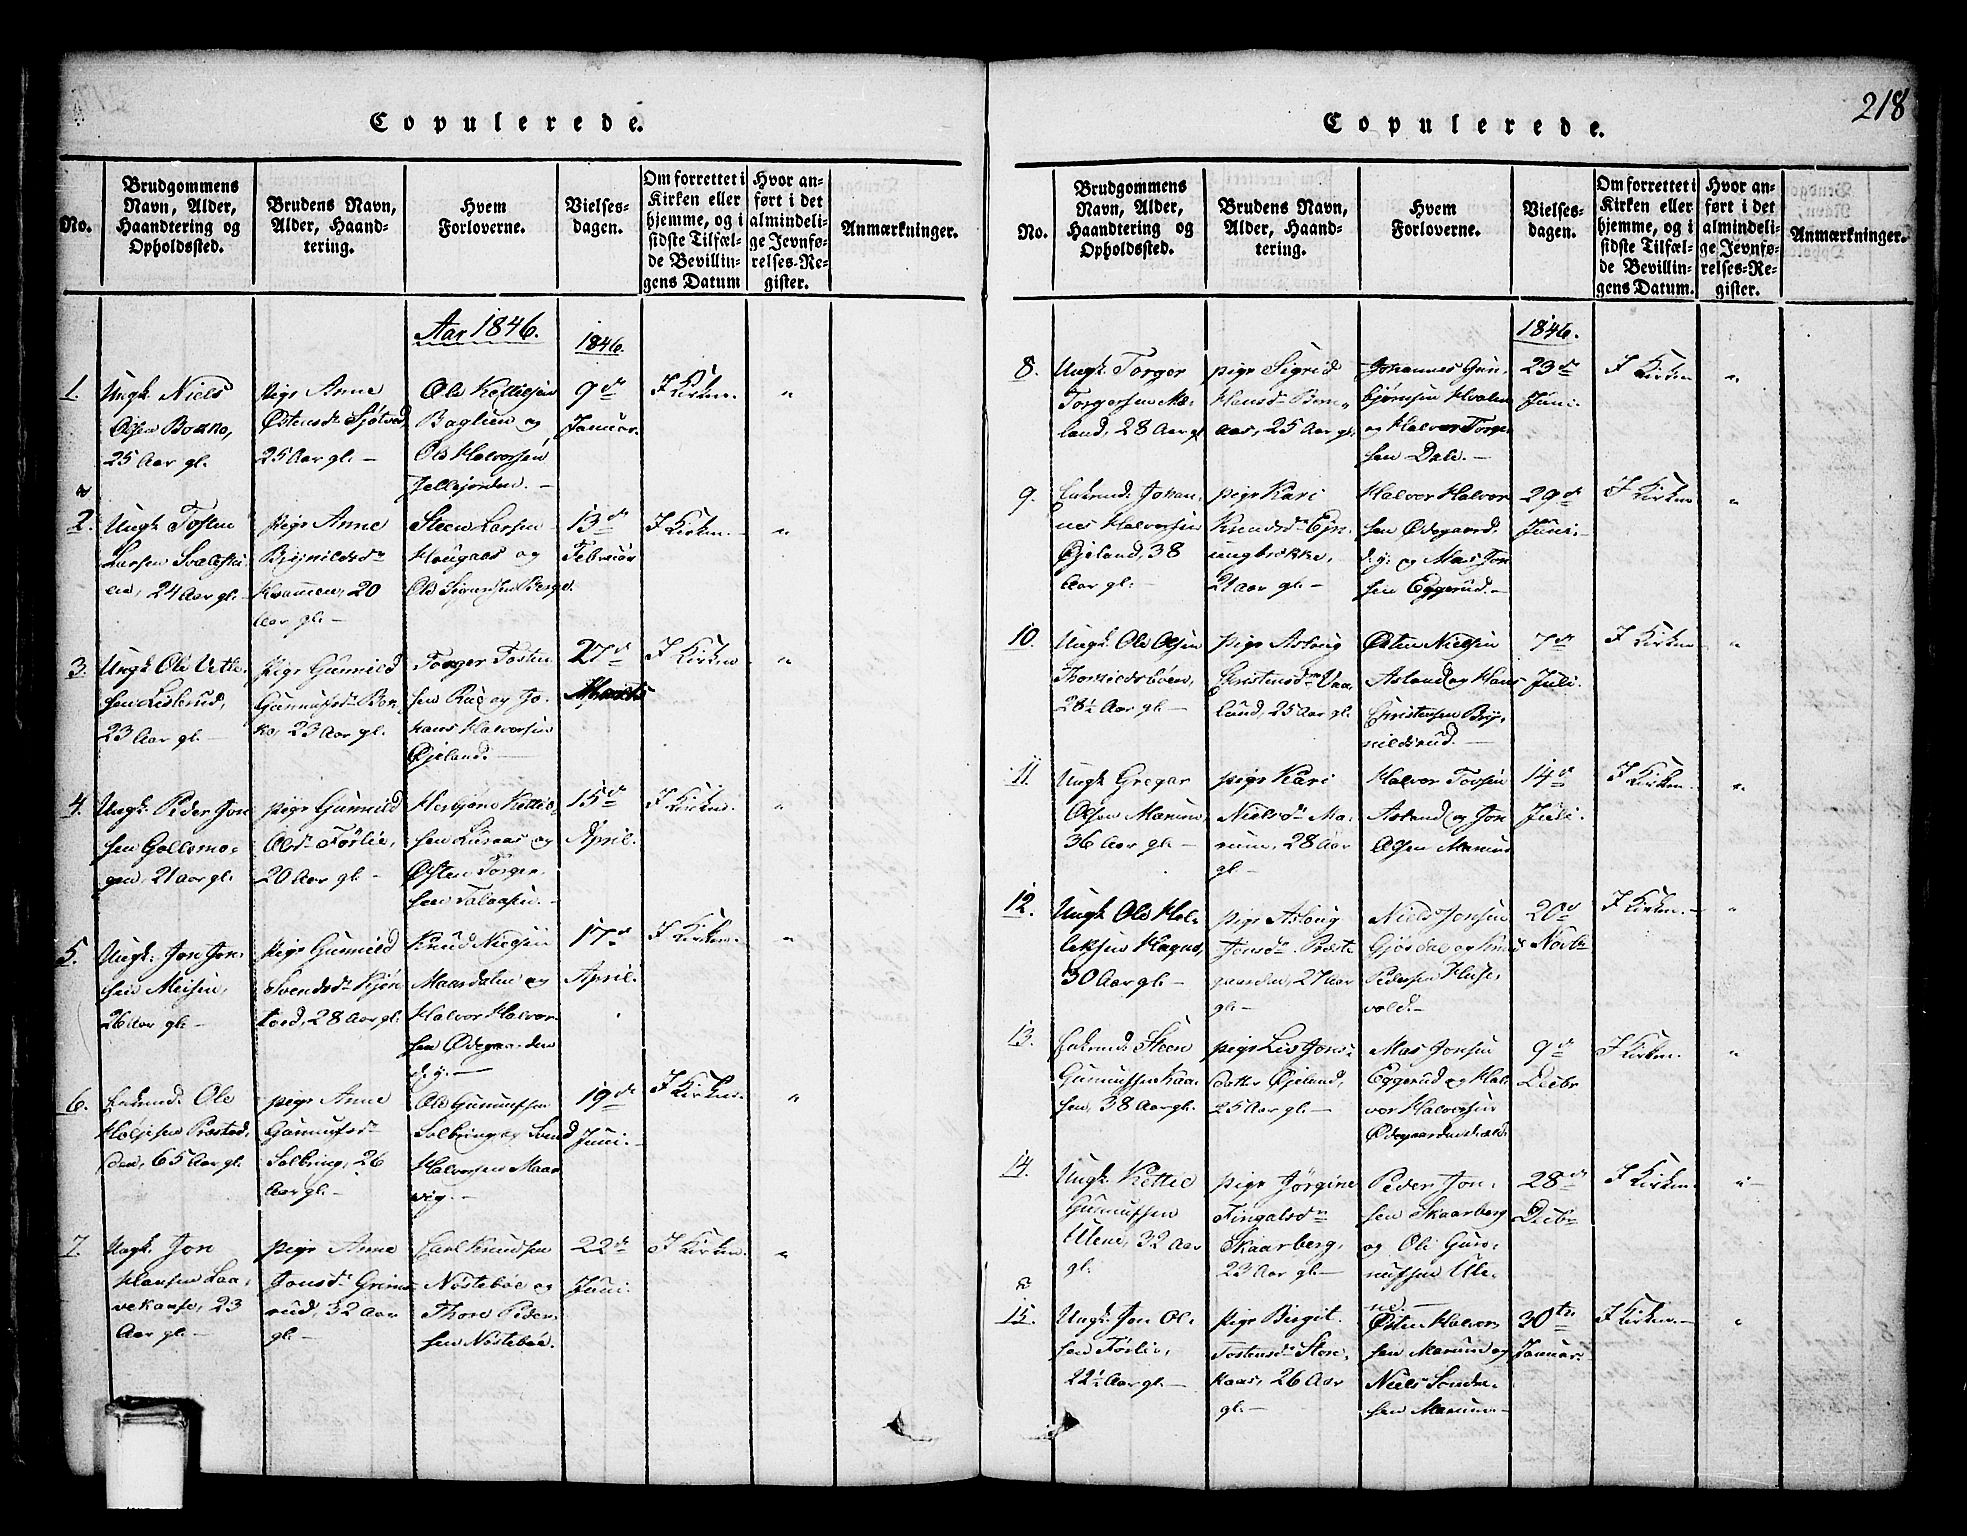 218
Copulerede.
No.
Brudgommens
Navn, Alder,
Haandtering og
Opholdssted.
Brudens Navn,
Alder, Haand-
tering.
Hvem
Forloverne.
Vielses-
dagen.
Om forrettet i
Kirken eller
hjemme, og i
sidste Tilfæl-
de Bevillin-
gens Datum
Hvor an-
ført i det
almindeli-
ge Jevnfø-
relses-Re-
gister.
Anmærkninger.
Aar 1846.
1846.
1.
Ungk. Niels
Olsen
25 Aar gl.
pige Anne
Østensd.
25 Aar gl. —
Ole Kettilsen
Baglien og
Ole Halvorsen
9de
Januar.
I Kirken.
"
2.
Ungk. Tosten
Larsen
24 Aar gl. —
pige Anne
Brynildsd.
20
Aar gl. —
Steen Larsen
Haugaas og
Ole Berge.
13de
Februar
I Kirken. —
"
3.
Ungk. Ole
23 Aar gl. —
pige Gunnild
Gunnufsd.
23 Aar gl.
Torger Tosten-
sen Rue og Jo-
hans Halvorsen
Øjeland. —
27de
Marts
I Kirken
"
4.
Ungk. Peder Jon-
sen
21 Aar gl.
pige Gunnild
Olsd. Førlie,
20 Aar gl. —
sen og
Østen Torger-
sen
15de
April.
I Kirken.
"
5.
Ungk. Jon Jon-
sen
26 Aar gl. —
pige Gunnild
Svendsd.
28 Aar gl.
Knud Nielsen
Maardalen og
Halvor Halvor-
sen Ødegaarden
d. y. —
17de
April.
I Kirken.
"
6.
Enkemd. Ole
65 Aar gl.
pige Anne
Gunnufsd.
Solbring, 26
Aar gl. —
Ole Gunnufsen
Solbring og Svend
Halvorsen Maar-
vig. —
19de
Juni. —
I Kirken.
"
7.
Ungk. Jon
Hansen
23
Aar gl. —
pige Anne
Jonsd. Grims-
rud, 32 Aar
gl. —
Carl Knudsen
Nøstebøe og
Thore Peder-
sen Nøstebøe.
22de
Juni.
I Kirken.
"
Copulerede.
No.
Brudgommens
Navn, Alder,
Haandtering og
Opholdssted.
Brudens Navn,
Alder, Haand-
tering.
Hvem
Forloverne.
Vielses-
dagen.
Om forrettet i
Kirken eller
hjemme, og i
sidste Tilfæl-
de Bevillin-
gens Datum.
Hvor an-
ført i det
almindeli-
ge Jevnfø-
relses-Re-
gister.
Anmærkninger.
1846.
8.
Ungk. Torger
Torgersen Mæ-
land, 28 Aar gl.
pige Sigrid
Hansd.
25 Aar gl.
Johannes Gun-
bjørnsen Hvalen
og Halvor Torger-
sen Dale. —
23de
Juni.
I Kirken
"
9.
Enkemd. Johan-
nes Halvorsen
Øjeland, 38
Aar gl. —
pige Kari
Knudsd. Ejn-
ungbrække,
21 Aar gl. —
Halvor Halvor-
sen Ødegaard.
d. y. og Mas Jon-
sen Eggerud. —
29de
Juni. —
I Kirken
"
10.
Ungk. Ole Olsen
28½ Aar gl. —
pige Aslaug
Christensd. Vaa-
lund, 25 Aar gl.
Østen Nielsen
Asland og Hans
Christensen Bryn-
nildsrud. —
7de
Juli.
I Kirken
"
11.
Ungk. Gregar
Olsen Marum,
36 Aar gl. —
pige Kari
Nielsd. Ma-
rum, 28 Aar
gl. —
Halvor Tovsen
Asland og Jon
Olsen Marum
14de
Juli.
I Kirken.
"
12.
Ungk. Ole Hal-
30 Aar gl. —
pige Aslaug
Jonsd. Præste-
gaarden, 27 Aar
gl. —
Niels Jensen
Gjøsdal og Knud
Pedersen Huse-
vold. —
20de
Novbr.
I Kirken. —
"
13.
Enkemd. Steen
Gunnufsen Kaa-
sen, 38 Aar gl.
pige Liv Jons-
datter Øjeland,
25 Aar gl. —
Mas Jonsen
Eggerud og Hal-
vor Halvorsen
9de
Decbr
I Kirken.
"
14.
Ungk. Kettil
Gunnufsen
Ulene, 32 Aar
gl.
pige Jørgine
Fingalsd.
Skaarberg,
23 Aar gl. —
Peder Jon-
sen Skaarberg
og Ole Gun-
nufsen Ule-
ne. —
28de
Decbr
I Kirken.
"
15.
Ungk. Jon Ol-
sen Førlie,
22½ Aar gl. —
pige Birgit
Tostensd. Store-
kaas, 26 Aar
gl. —
Østen Halvor-
sen Marum og
Niels
sen Marum —
30te
Januar.
I Kirken. —
"